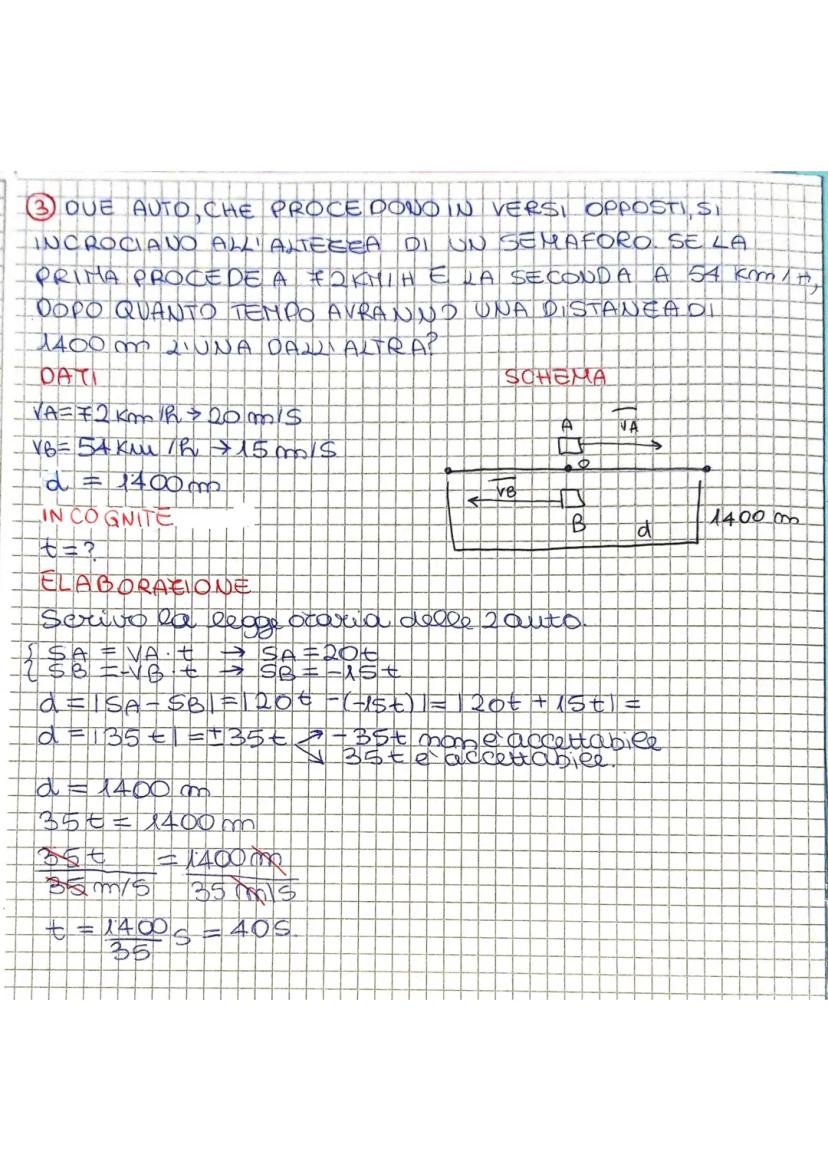 ③ DUE AUTO, CHE PROCEDONO IN VERSI OPPOSTI, SI
INCROCIANO ALL'ALTEZZA DI UN SEMAFORO. SE LA
PRIMA PROCEDE A 72KM/H E LA SECONDA A 54 Km/H,
DOPO QUANTO TEMPO AVRANNO UNA DISTANZA DI
1400 m L'UNA DALL'ALTRA?
DATI
SCHEMA
VA=72 Km/h → 20 m/s
VB= 54 Km/h → 15 m/s
d = 1400 m
A VA
0
VB
B d 1400 m
INCOGNITE
t = ?
ELABORAZIONE
Scrivo la legge oraria delle 2 auto.
{ SA = VA · t → SA = 20t
{ SB = -VB · t → SB = -15t
d = |SA - SB| = |20t - (-15t)| = |20t + 15t| =
d = |35t| = ±35t ↗ -35t non è accettabile
↘ 35t è accettabile.
d = 1400 m
35t = 1400 m
35t / 35 m/s = 1400 m / 35 m/s
t = 1400/35 s = 40s.